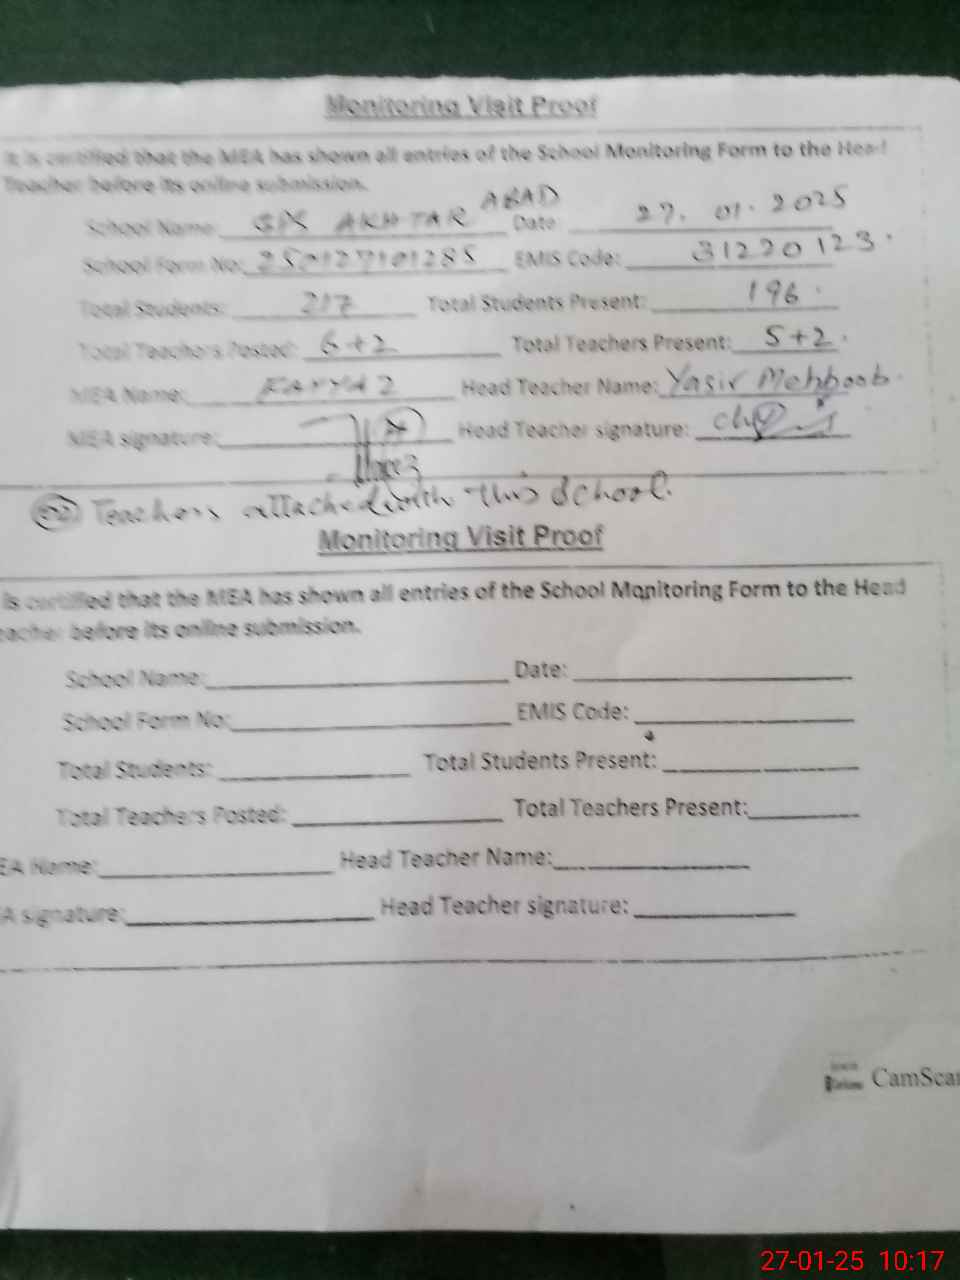 Monitoring Visit Proof
It is certified that the MEA has shown all entries of the School Monitoring Form to the Head
Teacher before its online submission.
School Name: GPS AKHTAR ABAD Date 27.01.2025
School Form No: 250127101285 EMIS Code: 31220123.
Total Students: 217 Total Students Present: 196.
Total Teachers Posted: 6+2 Total Teachers Present: 5+2.
MEA Name: Head Teacher Name: Yasir Mehboob.
MEA signature: Head Teacher signature:
Teachers attached with this School.
Monitoring Visit Proof
is certified that the MEA has shown all entries of the School Monitoring Form to the Head
eacher before its online submission.
School Name: Date:
School Form No: EMIS Code:
Total Students: Total Students Present:
Total Teachers Posted: Total Teachers Present:
EA Name: Head Teacher Name:
A signature: Head Teacher signature:
CamScan
27-01-25 10:17